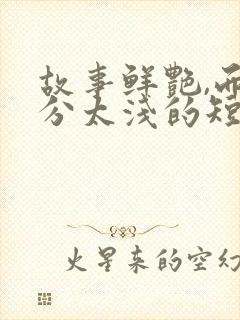 故事鲜艳,而
分太浅的短
火星来的空幻